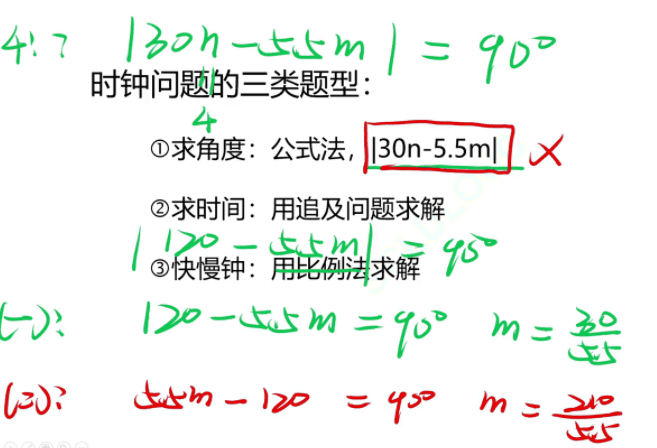 4:? |30n-5.5m| = 90°
时钟问题的三类题型：
4
①求角度：公式法，|30n-5.5m| ×
②求时间：用追及问题求解
|120-5.5m| = 90°
③快慢钟：用比例法求解
(一): 120-5.5m=90° m=30/5.5
(二): 5.5m-120 =90° m=210/5.5